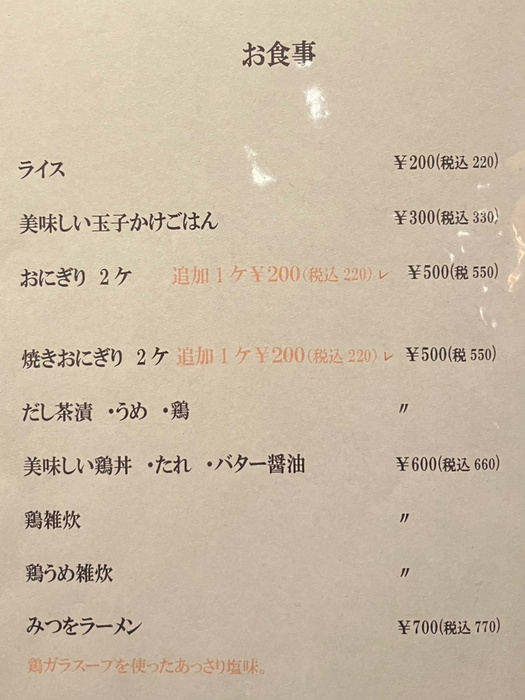 お食事
ライス ￥200(税込 220)
美味しい玉子かけごはん ￥300(税込 330)
おにぎり 2ケ 追加1ケ￥200(税込 220)レ ￥500(税 550)
焼きおにぎり 2ケ 追加1ケ￥200(税込 220)レ ￥500(税 550)
だし茶漬 ・うめ ・鶏 〃
美味しい鶏丼 ・たれ ・バター醤油 ￥600(税込 660)
鶏雑炊 〃
鶏うめ雑炊 〃
みつをラーメン ￥700(税込 770)
鶏ガラスープを使ったあっさり塩味。